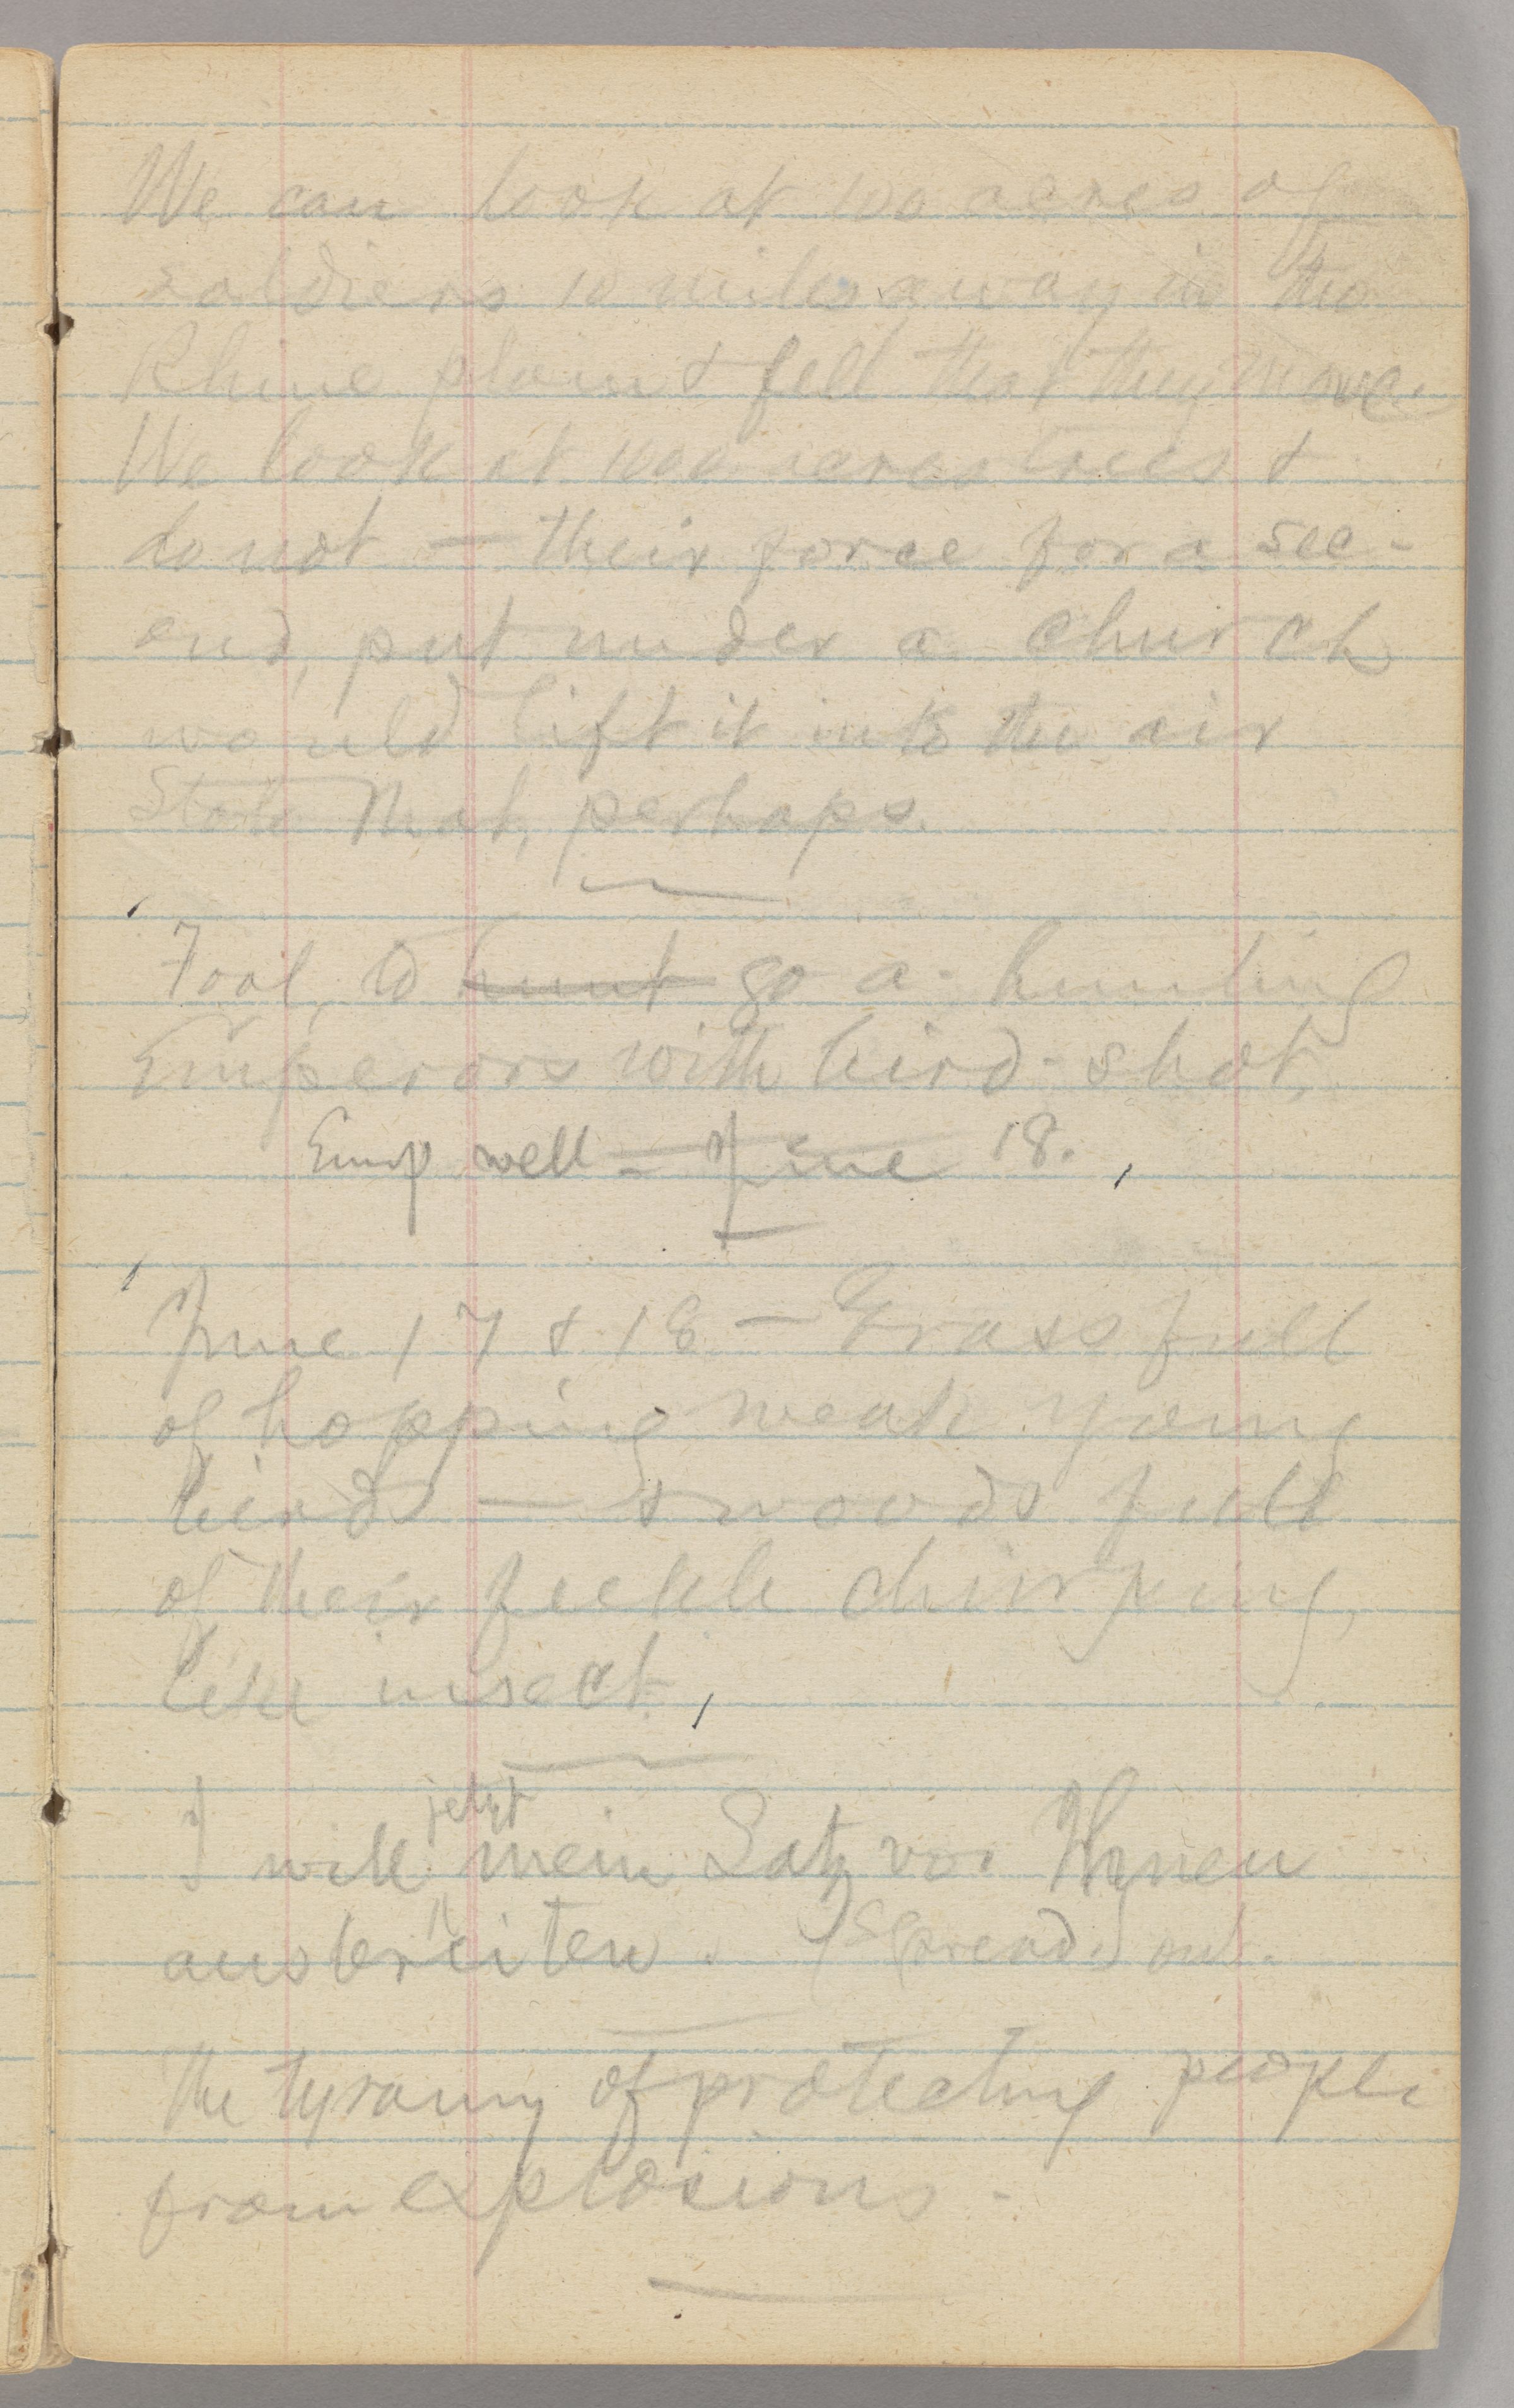 We can look at 100 acres of
soldiers 10 miles away in the
Rhine plain & fell that they move.
We look at 100 acres trees &
do not — their force for a sec-
ond, put under a church
would lift it into the air
State that, perhaps.
Fool, to hunt go a-hunting
Emperors with bird-shot.
Emp well — June 18.
June 17 & 18 — Grass full
of hopping weak young
birds — & woods full
of their feeble chirping,
like insect.
I will jetzt mein Satz vor Ihnen
ausbreiten. (Spread) out.
The tyranny of protecting people
from explosions —